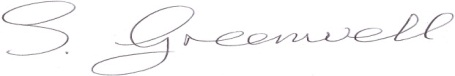 S. Greenwell